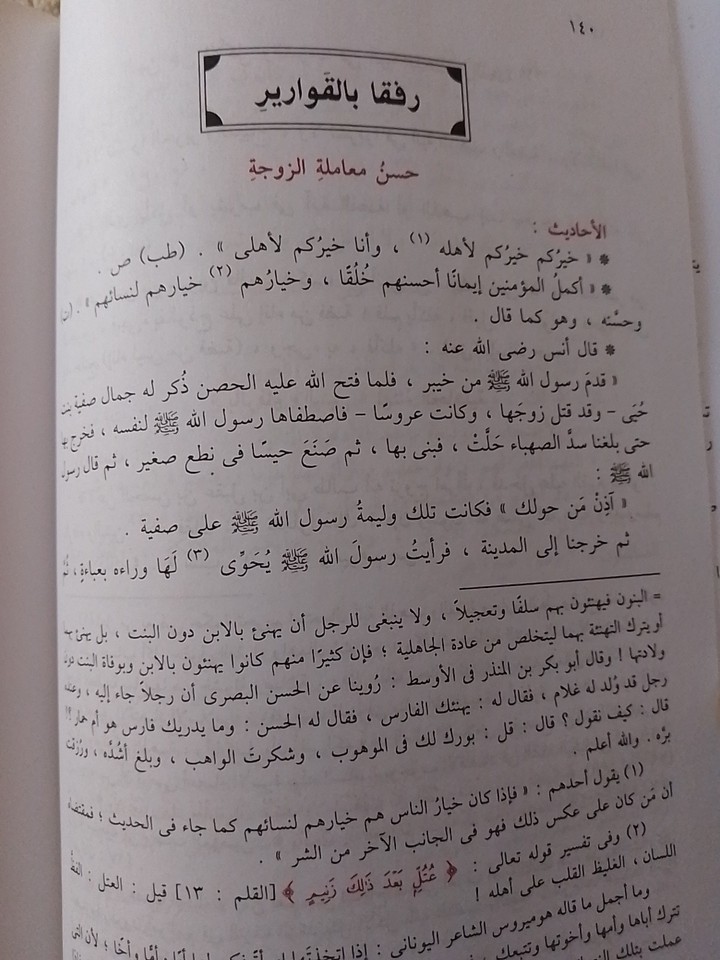 ١٤٠
رفقا بالقَواريرِ
حسنُ معاملةِ الزوجةِ
الأحاديث :
* « خيرُكم خيرُكم لأهله (١) ، وأنا خيرُكم لأهلى » . (طب) ص .
* « أكملُ المؤمنين إيمانًا أحسنهم خُلُقًا ، وخيارُهم (٢) خيارهم لنسائهم » . (ن)
وحسَّنه ، وهو كما قال .
* قال أنس رضى الله عنه :
« قدمَ رسول الله ﷺ من خيبر ، فلما فتح الله عليه الحصن ذُكر له جمال صفية بنت
حُيَى - وقد قتل زوجَها ، وكانت عروسًا - فاصطفاها رسول الله ﷺ لنفسه ، فخرج بها
حتى بلغنا سدَّ الصهباء حَلَّتْ ، فبنى بها ، ثم صَنَعَ حيسًا فى نطع صغير ، ثم قال رسول
الله ﷺ :
« آذِنْ مَن حولك » فكانت تلك وليمةُ رسول الله ﷺ على صفية .
ثم خرجنا إلى المدينة ، فرأيتُ رسولَ الله ﷺ يُحَوِّى (٣) لَهَا وراءه بعباءةٍ ، ثُمَّ
= البنون فيهنئون بهم سلفًا وتعجيلاً ، ولا ينبغى للرجل أن يهنئ بالابن دون البنت ، بل يهنئ بهما
أو يترك التهنئة بهما ليتخلص من عادة الجاهلية ؛ فإن كثيرًا منهم كانوا يهنئون بالابن وبوفاة البنت دون
ولادتها ! وقال أبو بكر بن المنذر فى الأوسط : رُوينا عن الحسن البصرى أن رجلاً جاء إليه ، وعنده
رجل قد وُلد له غلام ، فقال له : يهنئك الفارس ، فقال له الحسن : وما يدريك فارس هو أم حمار ؟!
قال : كيف نقول ؟ قال : قل : بورك لك فى الموهوب ، وشكرتَ الواهب ، وبلغ أشُدَّه ، ورُزقت
برَّه . والله أعلم .
(١) يقول أحدهم : « فإذا كان خيارُ الناس هم خيارهم لنسائهم كما جاء فى الحديث ؛ فمقتضاه
أن مَن كان على عكس ذلك فهو فى الجانب الآخر من الشر » .
(٢) وفى تفسير قوله تعالى : ﴿ عُتُلٍّ بَعْدَ ذَلِكَ زَنِيمٍ ﴾ [القلم : ١٣] قيل : العتل : الفظُّ
اللسان ، الغليظ القلب على أهله !
وما أجمل ما قاله هوميروس الشاعر اليونانى : إذا اتخذتَها وأمًّا وأخًا ؛ لأن التى
تترك أباها وأمها وأخوتها وتتبعك
عملت بتلك